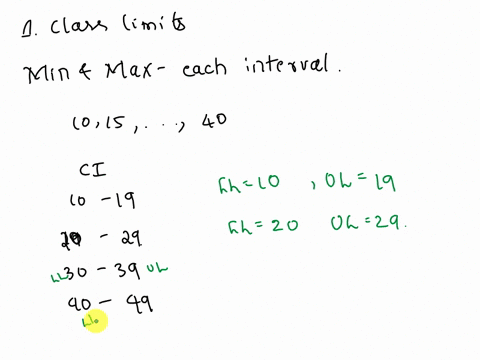 1. Class limits
Min & Max - each interval.
10, 15, . . . , 40
CI
10 - 19 LL=10 , UL=19
20 - 29 LL=20 UL=29.
LL 30 - 39 UL
40 - 49
LL